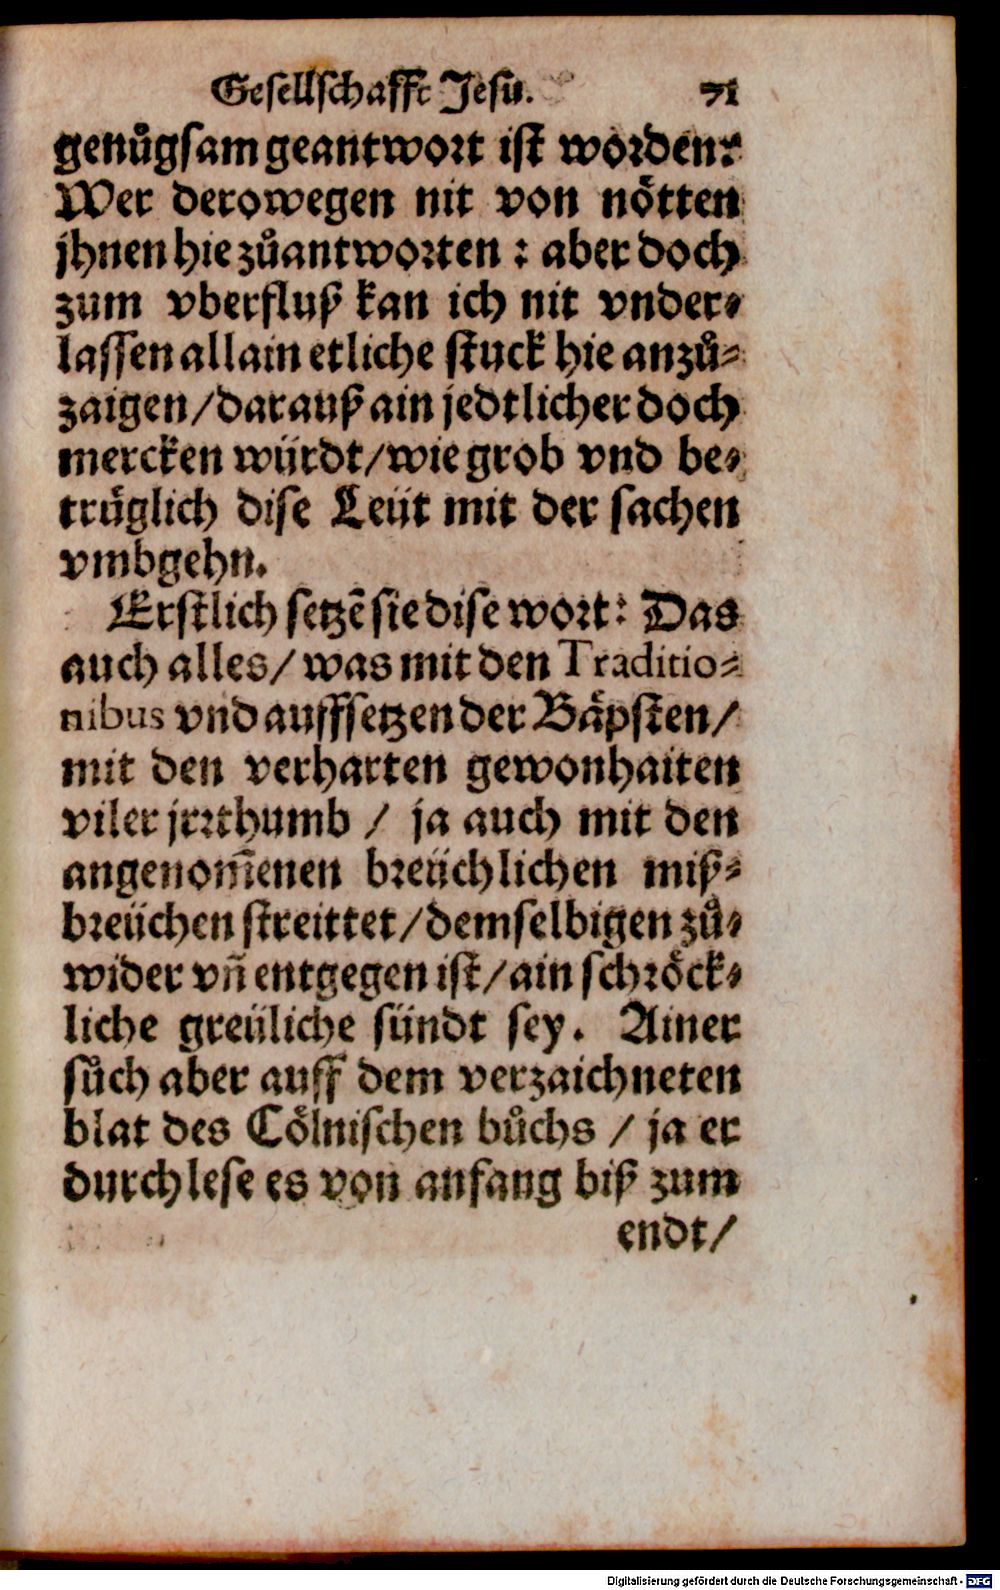 Gesellschafft Jesu. 71
genůgsam geantwort ist worden:
Wer derowegen nit von nötten
jhnen hie zůantworten : aber doch
zum vberfluß kan ich nit vnder-
lassen allain etliche stuck hie anzů-
zaigen/darauß ain jedtlicher doch
mercken würdt/wie grob vnd be-
trüglich dise Leüt mit der sachen
vmbgehn.
Erstlich setzē sie dise wort: Das
auch alles/ was mit den Traditio-
nibus vnd auffsetzen der Bäpsten/
mit den verharten gewonhaiten
viler jrrthumb / ja auch mit den
angenom̄enen breüchlichen miß-
breüchen streittet/demselbigen zů-
wider vn̄ entgegen ist/ain schröck-
liche greüliche sündt sey. Ainer
sůch aber auff dem verzaichneten
blat des Cölnischen bůchs / ja er
durchlese es von anfang biß zum
endt/
Digitalisierung gefördert durch die Deutsche Forschungsgemeinschaft - DFG